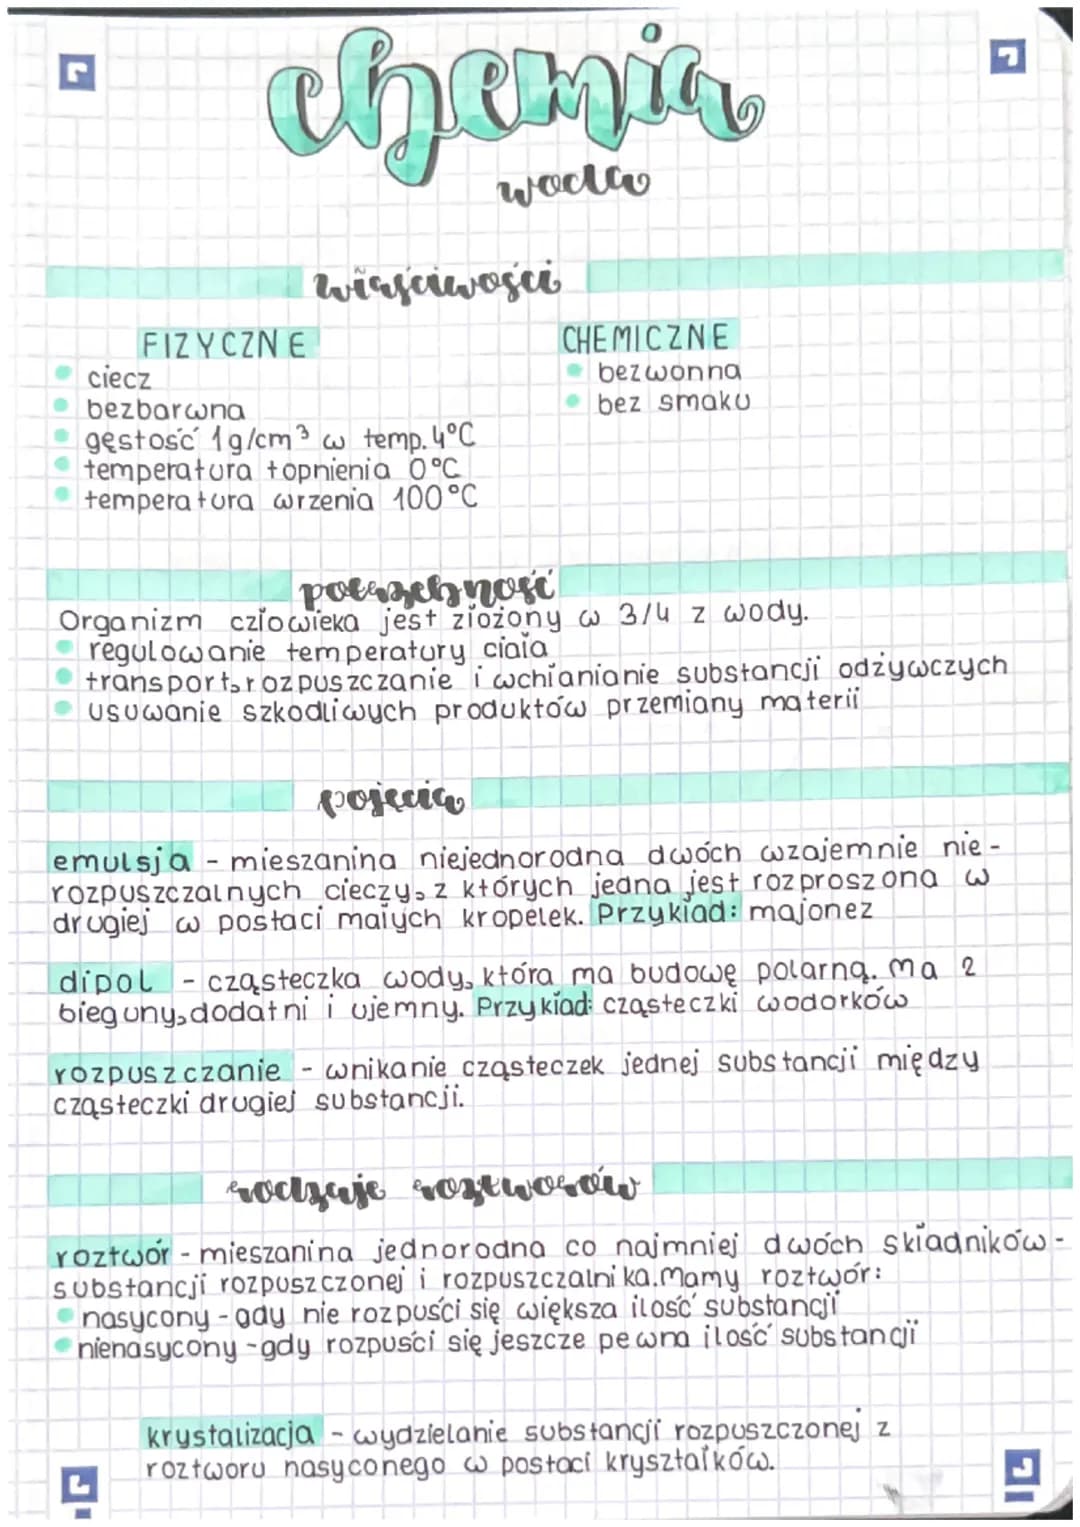 chemia
woda
właściwości
FIZYCZNE
ciecz
bezbarwna
gęstość 1g/cm³ w temp. 4°C
temperatura topnienia 0°C
temperatura wrzenia 100°C
CHEMICZNE
bezwonna
bez smaku
potrzebność
Organizm człowieka jest złożony w 3/4 z wody.
regulowanie temperatury ciała
transport, rozpuszczanie i wchłanianie substancji odżywczych
usuwanie szkodliwych produktów przemiany materii
pojęcia
emulsja - mieszanina niejednorodna dwóch wzajemnie nie-
rozpuszczalnych cieczy, z których jedna jest rozproszona w
drugiej w postaci małych kropelek. Przykład: majonez
dipol - cząsteczka wody, która ma budowę polarną. Ma 2
bieguny, dodatni i ujemny. Przykład: cząsteczki wodorków
rozpuszczanie - wnikanie cząsteczek jednej substancji między
cząsteczki drugiej substancji.
rodzaje roztworów
roztwór - mieszanina jednorodna co najmniej dwóch składników -
substancji rozpuszczonej i rozpuszczalnika. Mamy roztwór:
nasycony - gdy nie rozpuści się większa ilość substancji
nienasycony - gdy rozpuści się jeszcze pewna ilość substancji
krystalizacja - wydzielanie substancji rozpuszczonej z
roztworu nasyconego w postaci kryształków.